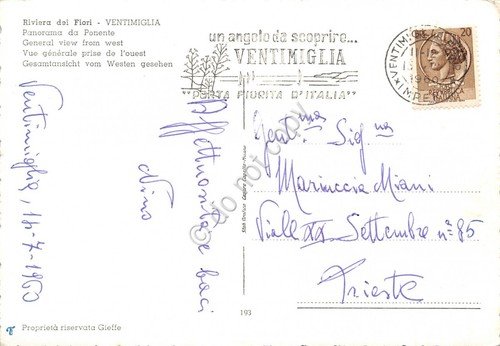 Riviera dei Fiori - VENTIMIGLIA
Panorama da Ponente
General view from west
Vue générale prise de l'ouest
Gesamtansicht vom Westen gesehen
un angolo da scoprire...
VENTIMIGLIA
"PORTA FIORITA D'ITALIA"
VENTIMIGLIA
IMPERIA
20
Ventimiglia, 14-7-1960
Affettuosità e baci
Nino
Gent.ma Sig.na
Mariuccia Miani
Viale XX Settembre n° 85
Trieste
do not copy
193
Proprietà riservata Gieffe